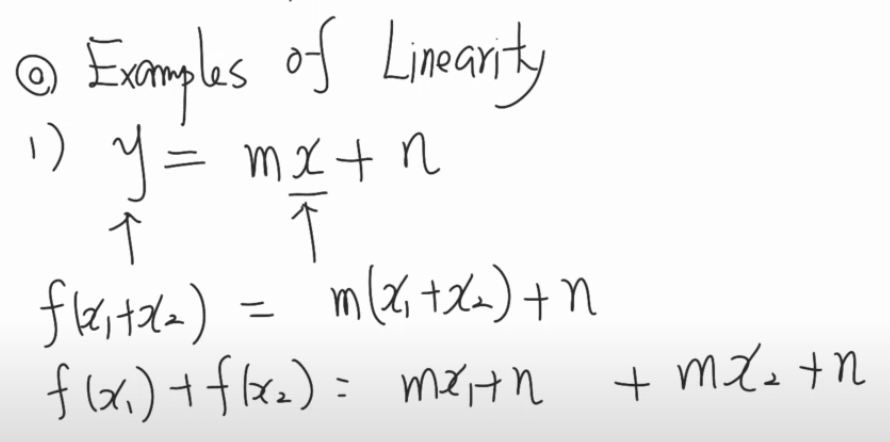 ◎ Examples of Linearity
1) y = mx + n
↑ ↑
f(x₁+x₂) = m(x₁+x₂)+n
f(x₁)+f(x₂) = mx₁+n + mx₂+n